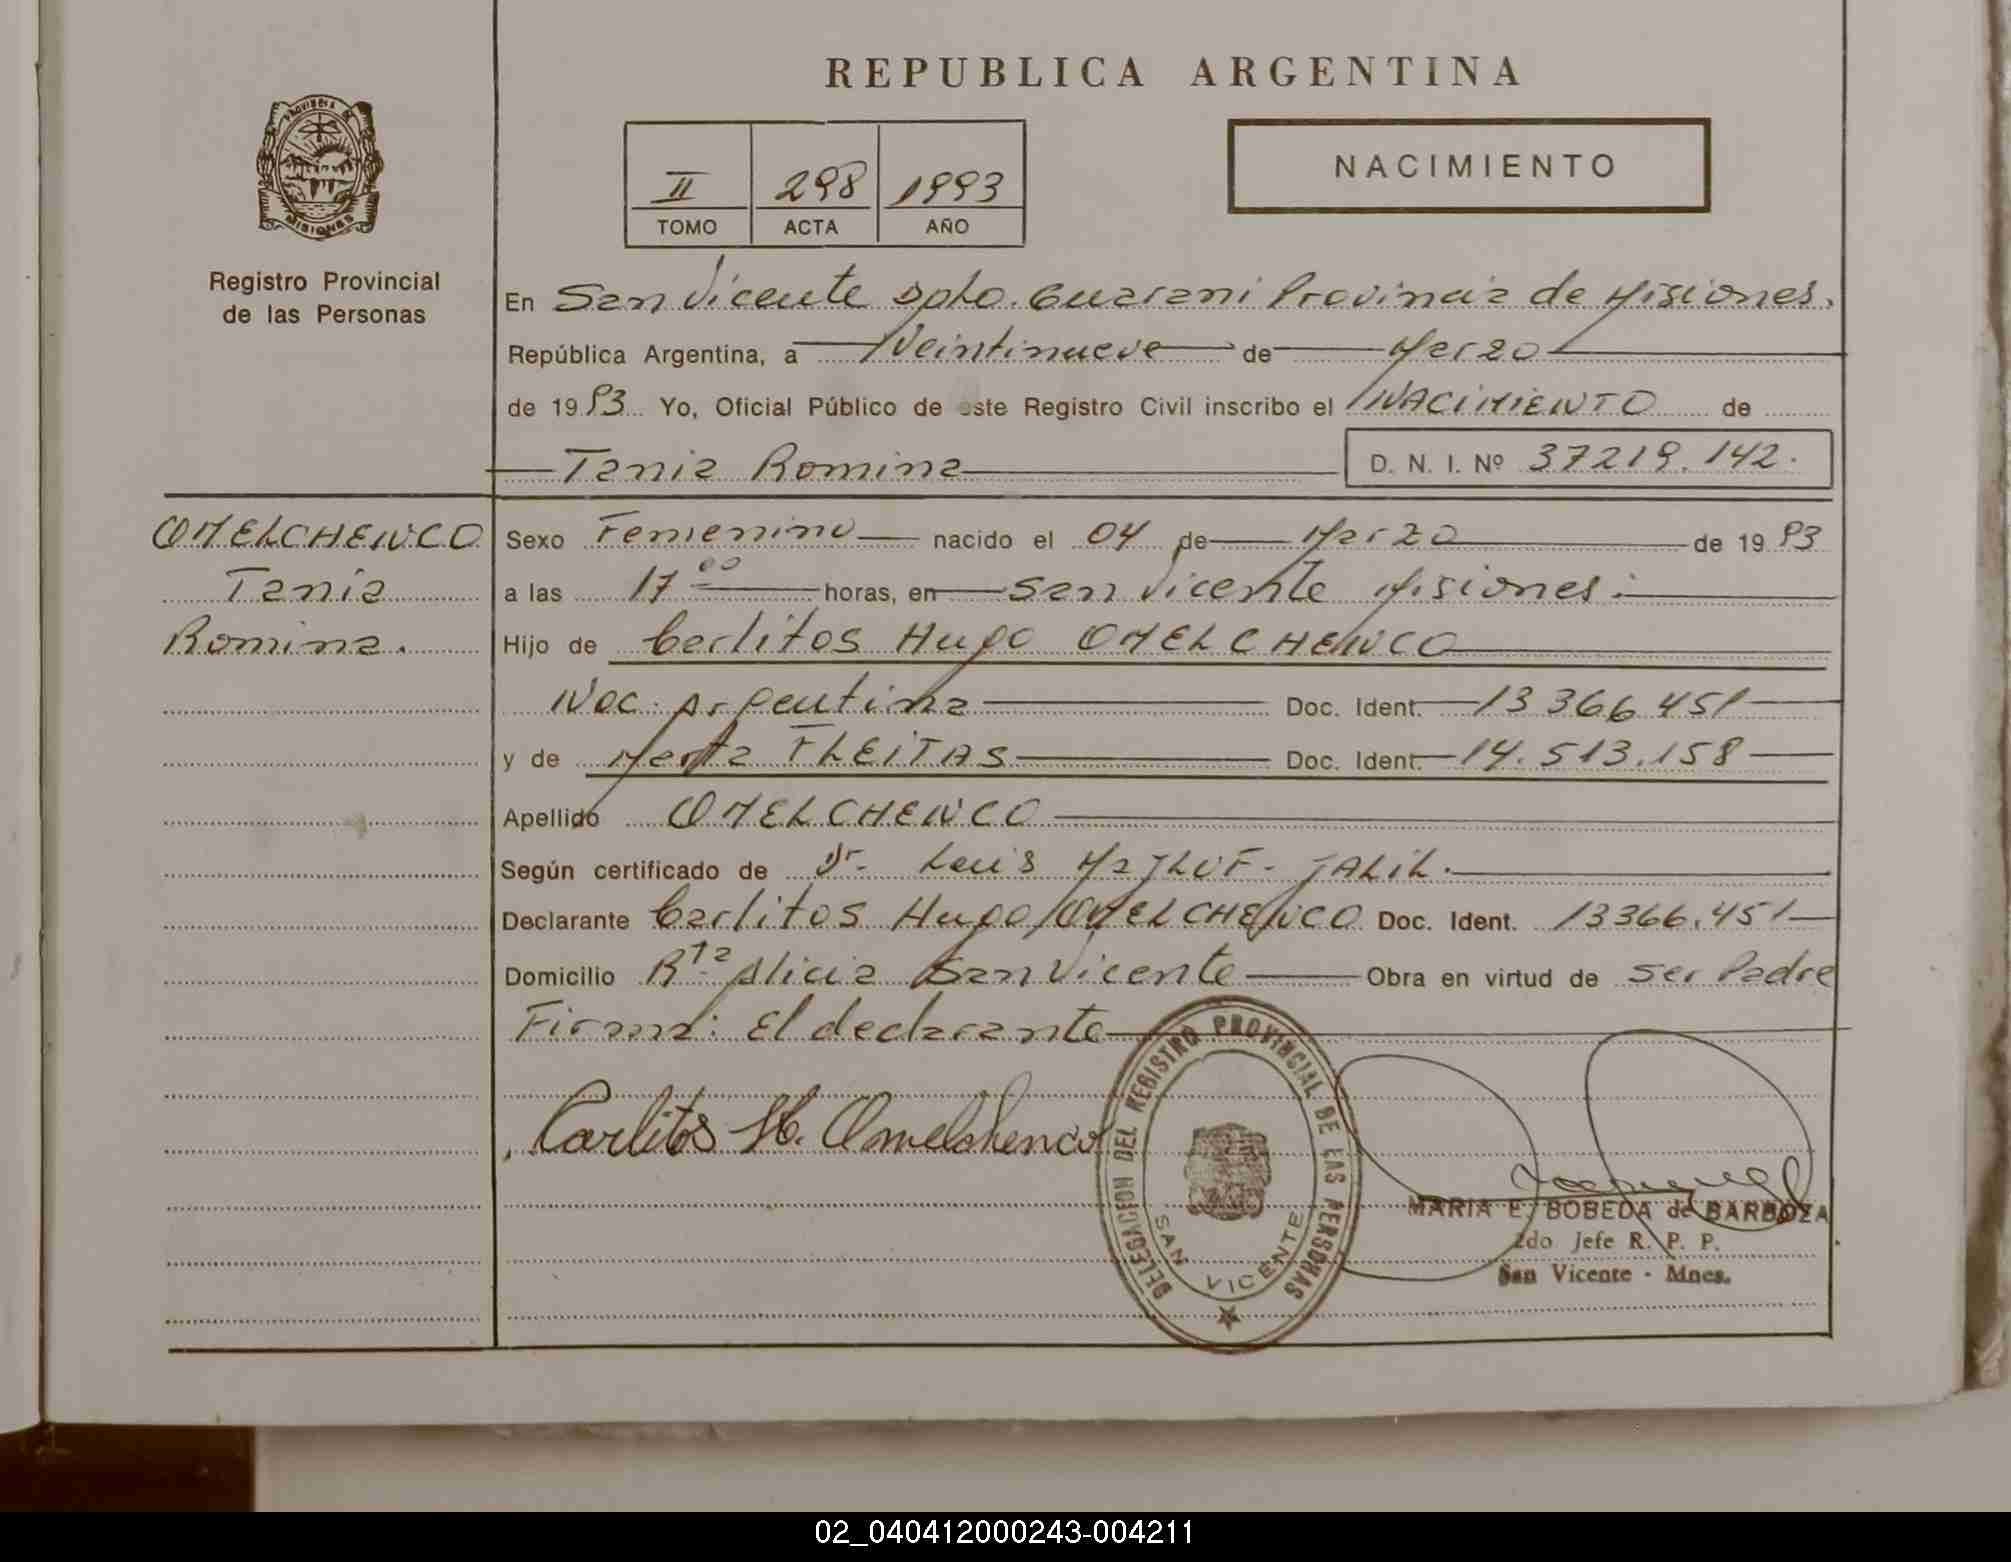 REPUBLICA ARGENTINA
PROVINCIA DE
MISIONES
Registro Provincial
de las Personas
II 298 1993
TOMO ACTA AÑO
NACIMIENTO
En San Vicente Dpto. Guarani Provincia de Misiones.
República Argentina, a Veintinueve de Marzo
de 1993 Yo, Oficial Público de este Registro Civil inscribo el NACIMIENTO de
Tania Romina D. N. I. Nº 37219.142.
OMELCHENCO
Tania
Romina.
Sexo Femenino nacido el 04 de Marzo de 1993
a las 17 00 horas, en San Vicente Misiones.
Hijo de Carlitos Hugo OMELCHENCO
Nac. Argentina Doc. Ident. 13366451
y de Marta FLEITAS Doc. Ident. 14.513.158
Apellido OMELCHENCO
Según certificado de Dr. Luis MaJLUF - JALIL.
Declarante Carlitos Hugo OMELCHENCO Doc. Ident. 13366.451
Domicilio Rta Alicia San Vicente Obra en virtud de ser Padre
Firma: El declarante
Carlitos H. Omelchenco
DELEGACION DEL REGISTRO PROVINCIAL DE LAS PERSONAS
SAN VICENTE
MARIA E. BOBEDA de BARBOZA
2do Jefe R. P. P.
San Vicente - Mnes.
02_040412000243-004211